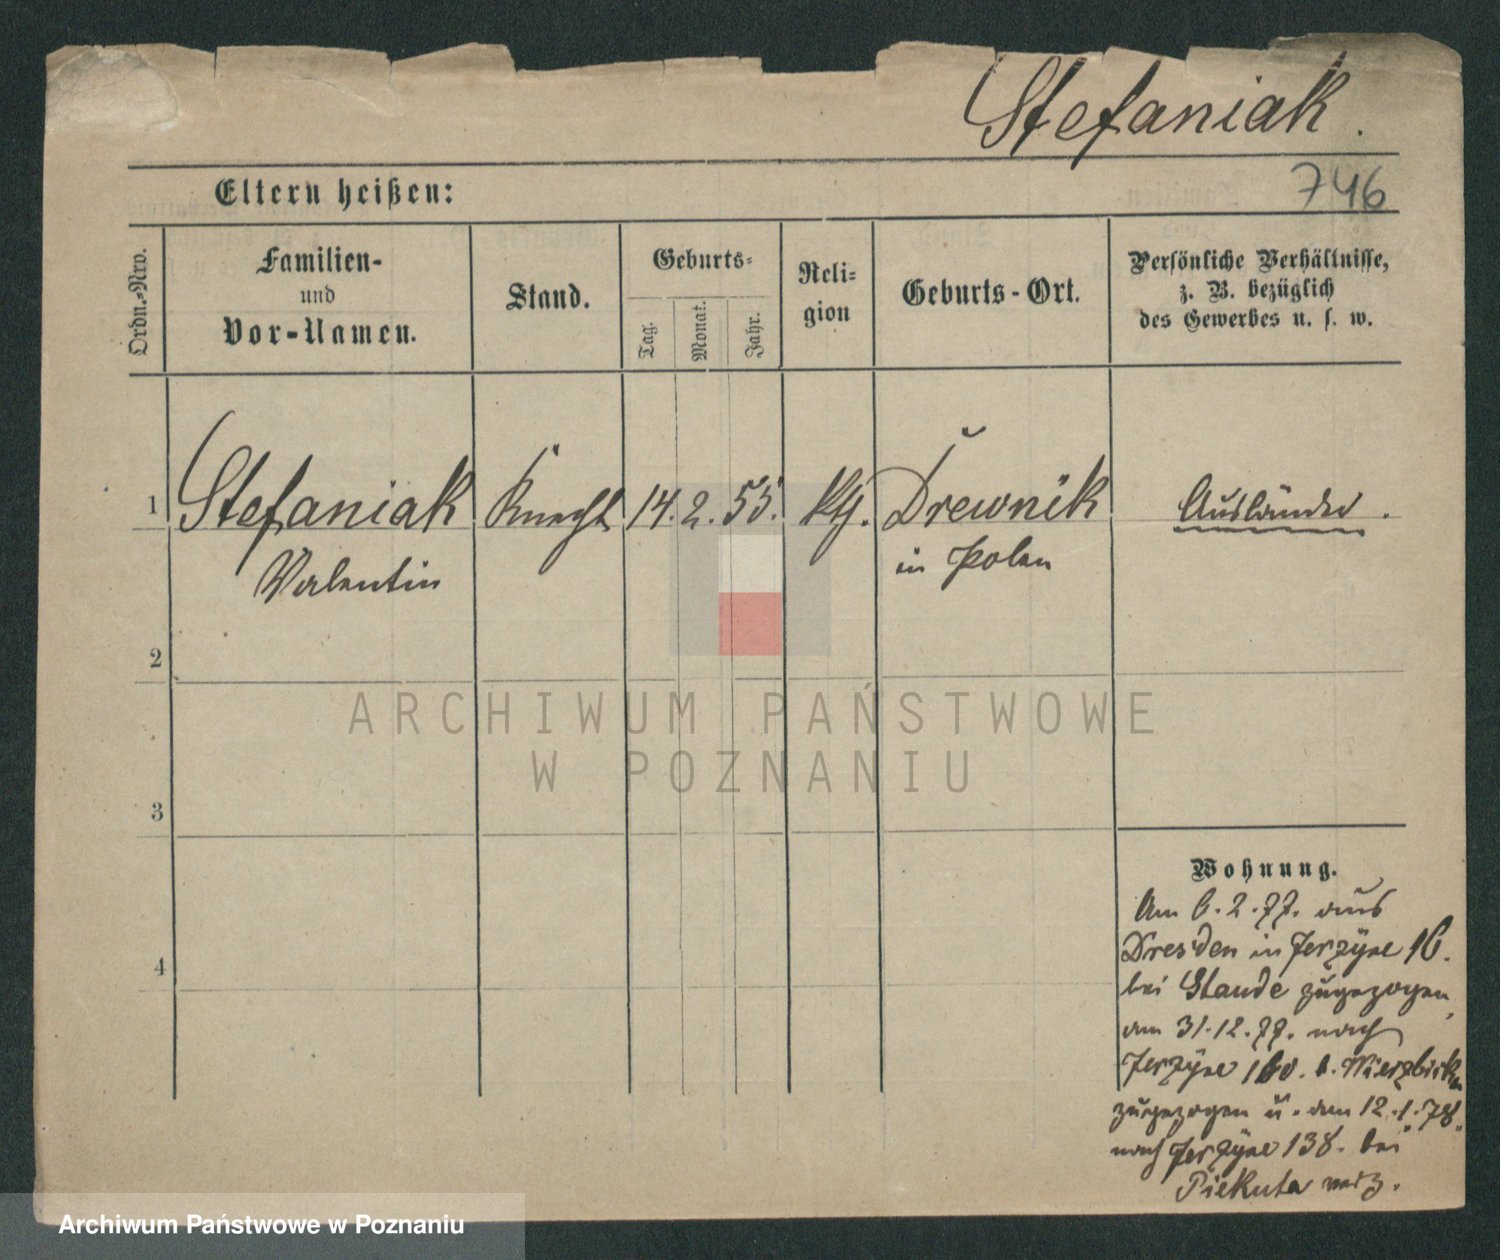 Stefaniak.
746
Eltern heißen:
Ordn.-Nro.
Familien-
und
Vor-Namen.
Stand.
Geburts-
Tag.
Monat.
Jahr.
Reli-
gion
Geburts-Ort.
Persönliche Verhältnisse,
z. B. bezüglich
des Gewerbes u. s. w.
1 Stefaniak Knecht 14. 2. 55. kth. Drewnik Ausländer.
Valentin in Polen
2
3
4
ARCHIWUM PAŃSTWOWE
W POZNANIU
Wohnung.
Am 6.2.77. aus
Dresden in Jerzyce 16.
bei Staude zugezogen,
am 31.12.77. nach
Jerzyce
zugezogen u. am 12.1.78.
nach Jerzyce 138. bei
Piekuta verz.
Archiwum Państwowe w Poznaniu